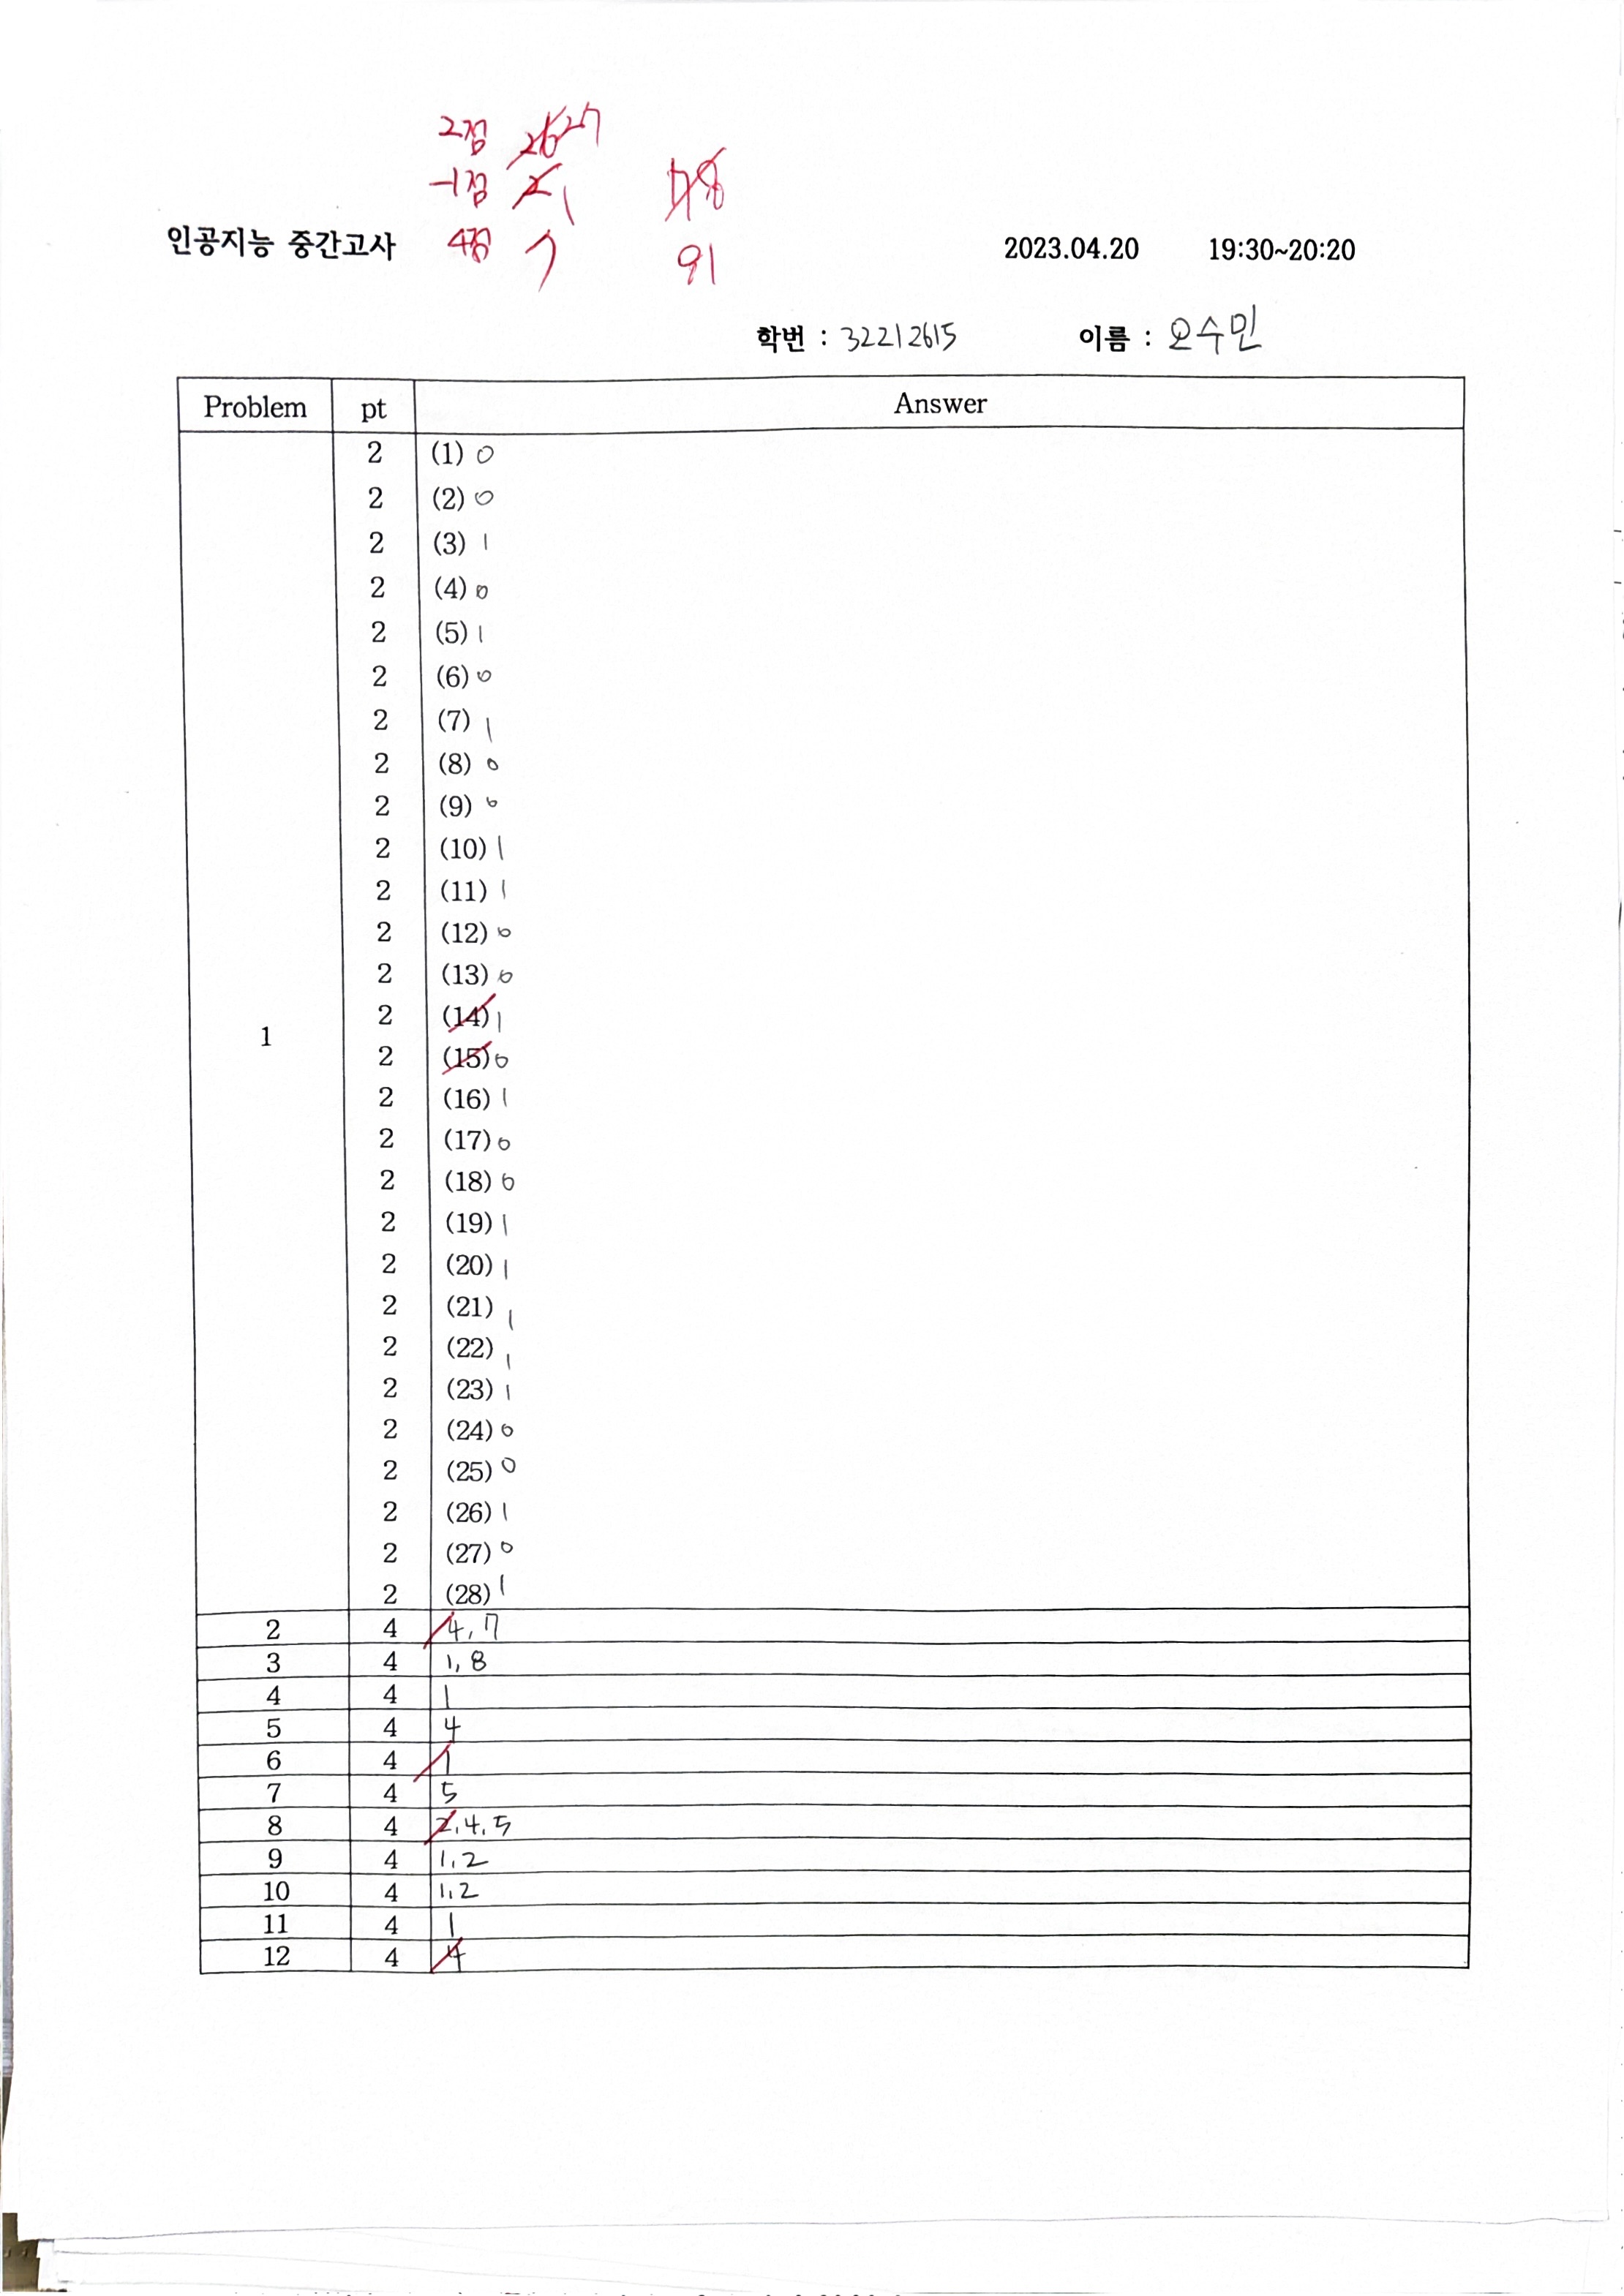 2점 26 27
-1점 2 1
인공지능 중간고사 4점 7 91 2023.04.20 19:30~20:20
학번 : 32212615 이름 : 오수민
Problem pt Answer
1
2 (1) 0
2 (2) 0
2 (3) 1
2 (4) 0
2 (5) 1
2 (6) 0
2 (7) 1
2 (8) 0
2 (9) 0
2 (10) 1
2 (11) 1
2 (12) 0
2 (13) 0
2 (14) 1
2 (15) 0
2 (16) 1
2 (17) 0
2 (18) 0
2 (19) 1
2 (20) 1
2 (21) 1
2 (22) 1
2 (23) 1
2 (24) 0
2 (25) 0
2 (26) 1
2 (27) 0
2 (28) 1
2 4 4, 7
3 4 1, 8
4 4 1
5 4 4
6 4 1
7 4 5
8 4 2, 4, 5
9 4 1, 2
10 4 1, 2
11 4 1
12 4 4